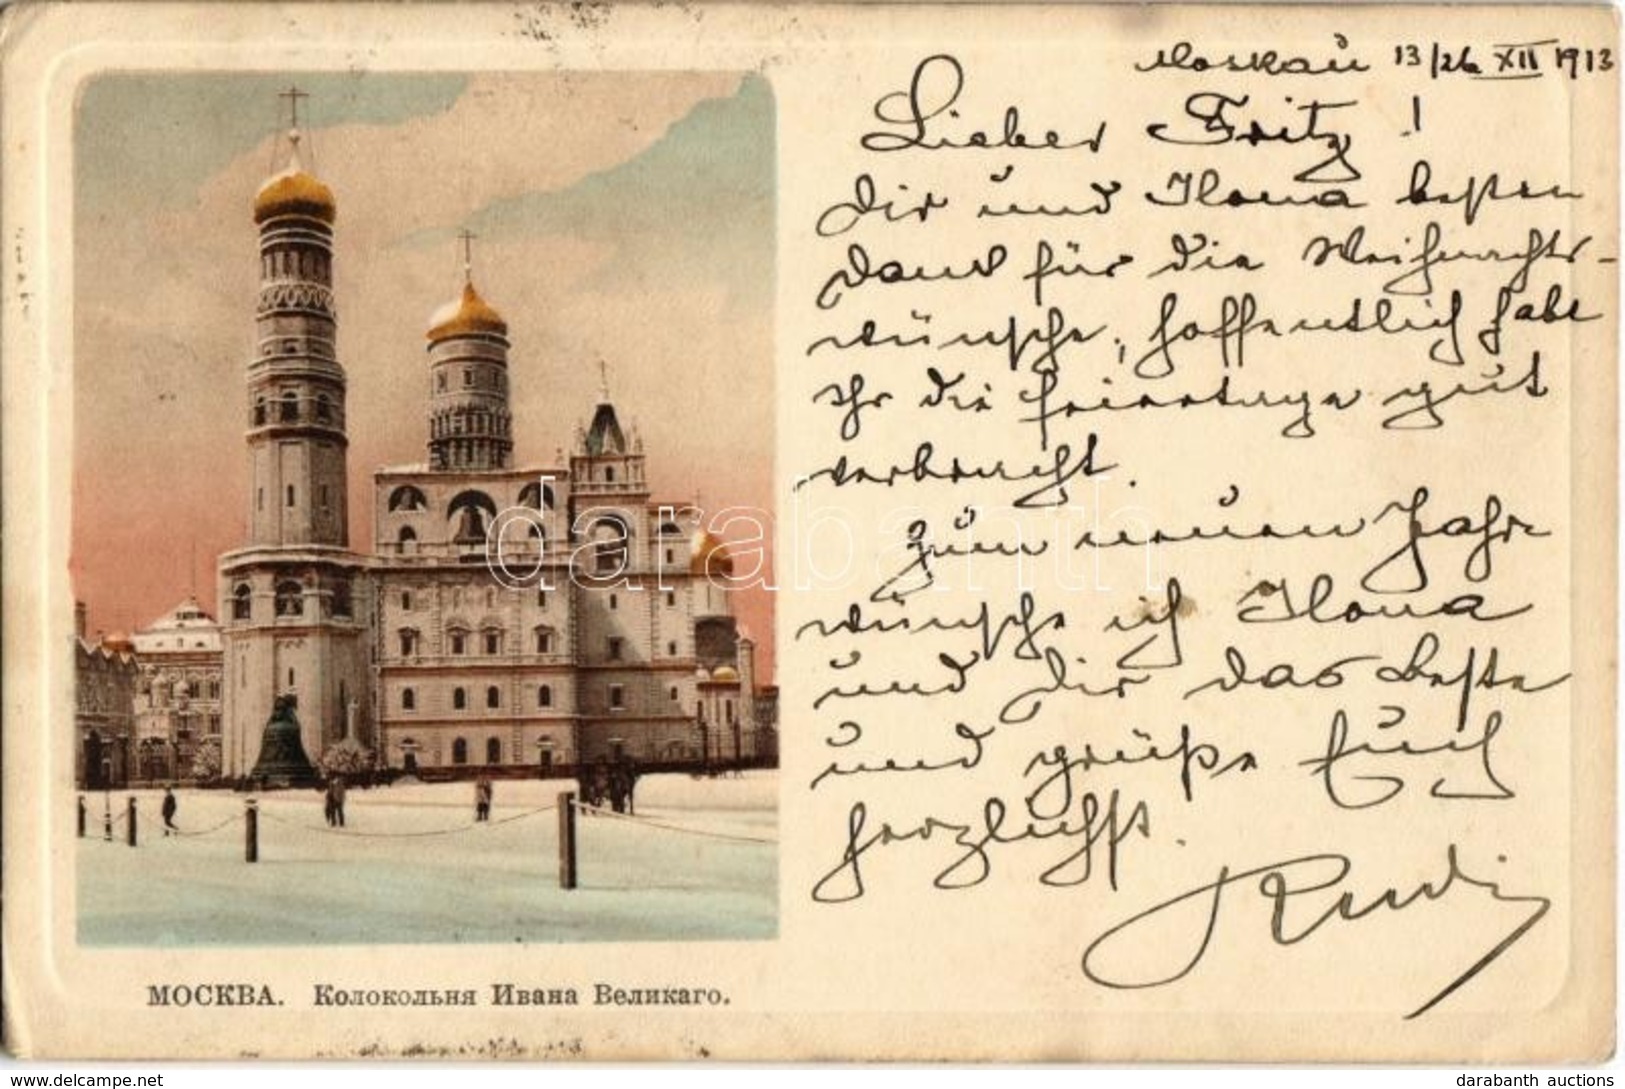 Moskau 13/26 XII 1913
Lieber Fritz!
Dir und Ilona besten
Dank für die Weihnachts-
wünsche, hoffentlich habt
Ihr die Feiertage gut
verbracht.
Zum neuen Jahr
wünsche ich Ilona
und Dir das Beste
und grüße Euch
herzlichst.
Rudi
МОСКВА. Колокольня Ивана Великаго.
darabanth
delcampe.net
darabanth auctions